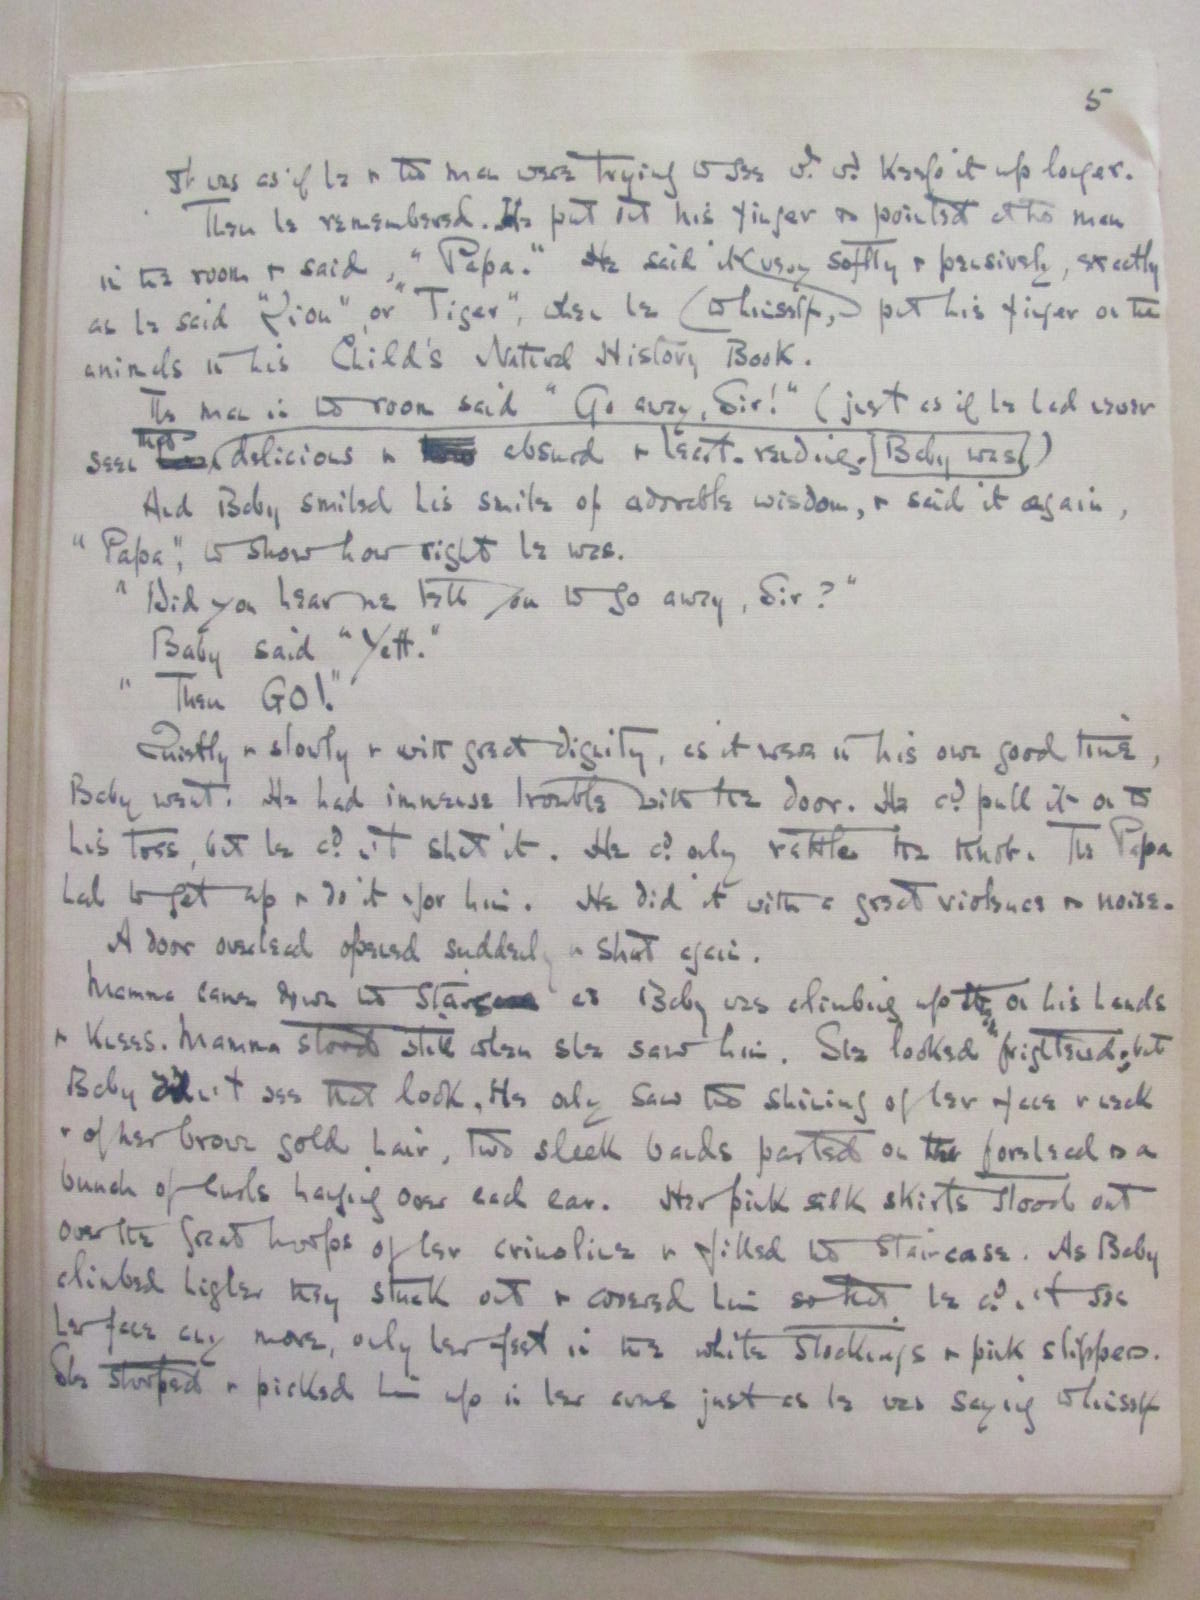 5
It was as if he & the man were trying to see w.d. w.d. keep it up longer.
Then he remembered. He put out his finger & pointed at the man
in the room & said, "Papa." He said it very softly & pensively, exactly
as he said "Lion" or "Tiger", when he (whissif,) put his finger on the
animals in his Child's Natural History Book.
The man in the room said "Go away, Sir!" (just as if he had never
seen how delicious & absurd & heart-rending. Baby was)
And Baby smiled his smile of adorable wisdom, & said it again,
"Papa", to show how right he was.
"Did you hear me tell you to go away, Sir?"
Baby said "Yett."
"Then GO!"
Quietly & slowly & with great dignity, as it were in his own good time,
Baby went. He had immense trouble with the door. He c.d pull it on to
his toes, but he c.d n't shut it. He c.d only rattle the knob. The Papa
had to get up & do it for him. He did it with a great violence & noise.
A door overhead opened suddenly & shut again.
Mamma came down the stairs as Baby was climbing up them on his hands
& knees. Mamma stood still when she saw him. She looked frightened, but
Baby didn't see that look. He only saw the shining of her face & neck
& of her brown gold hair, two sleek bands parted on the forehead & a
bunch of curls hanging over each ear. Her pink silk skirts stood out
over the great hoops of her crinoline & filled the staircase. As Baby
climbed higher they stuck out & covered him so that he c.d n't see
her face any more, only her feet in the white stockings & pink slippers.
She stooped & picked him up in her arms just as he was saying